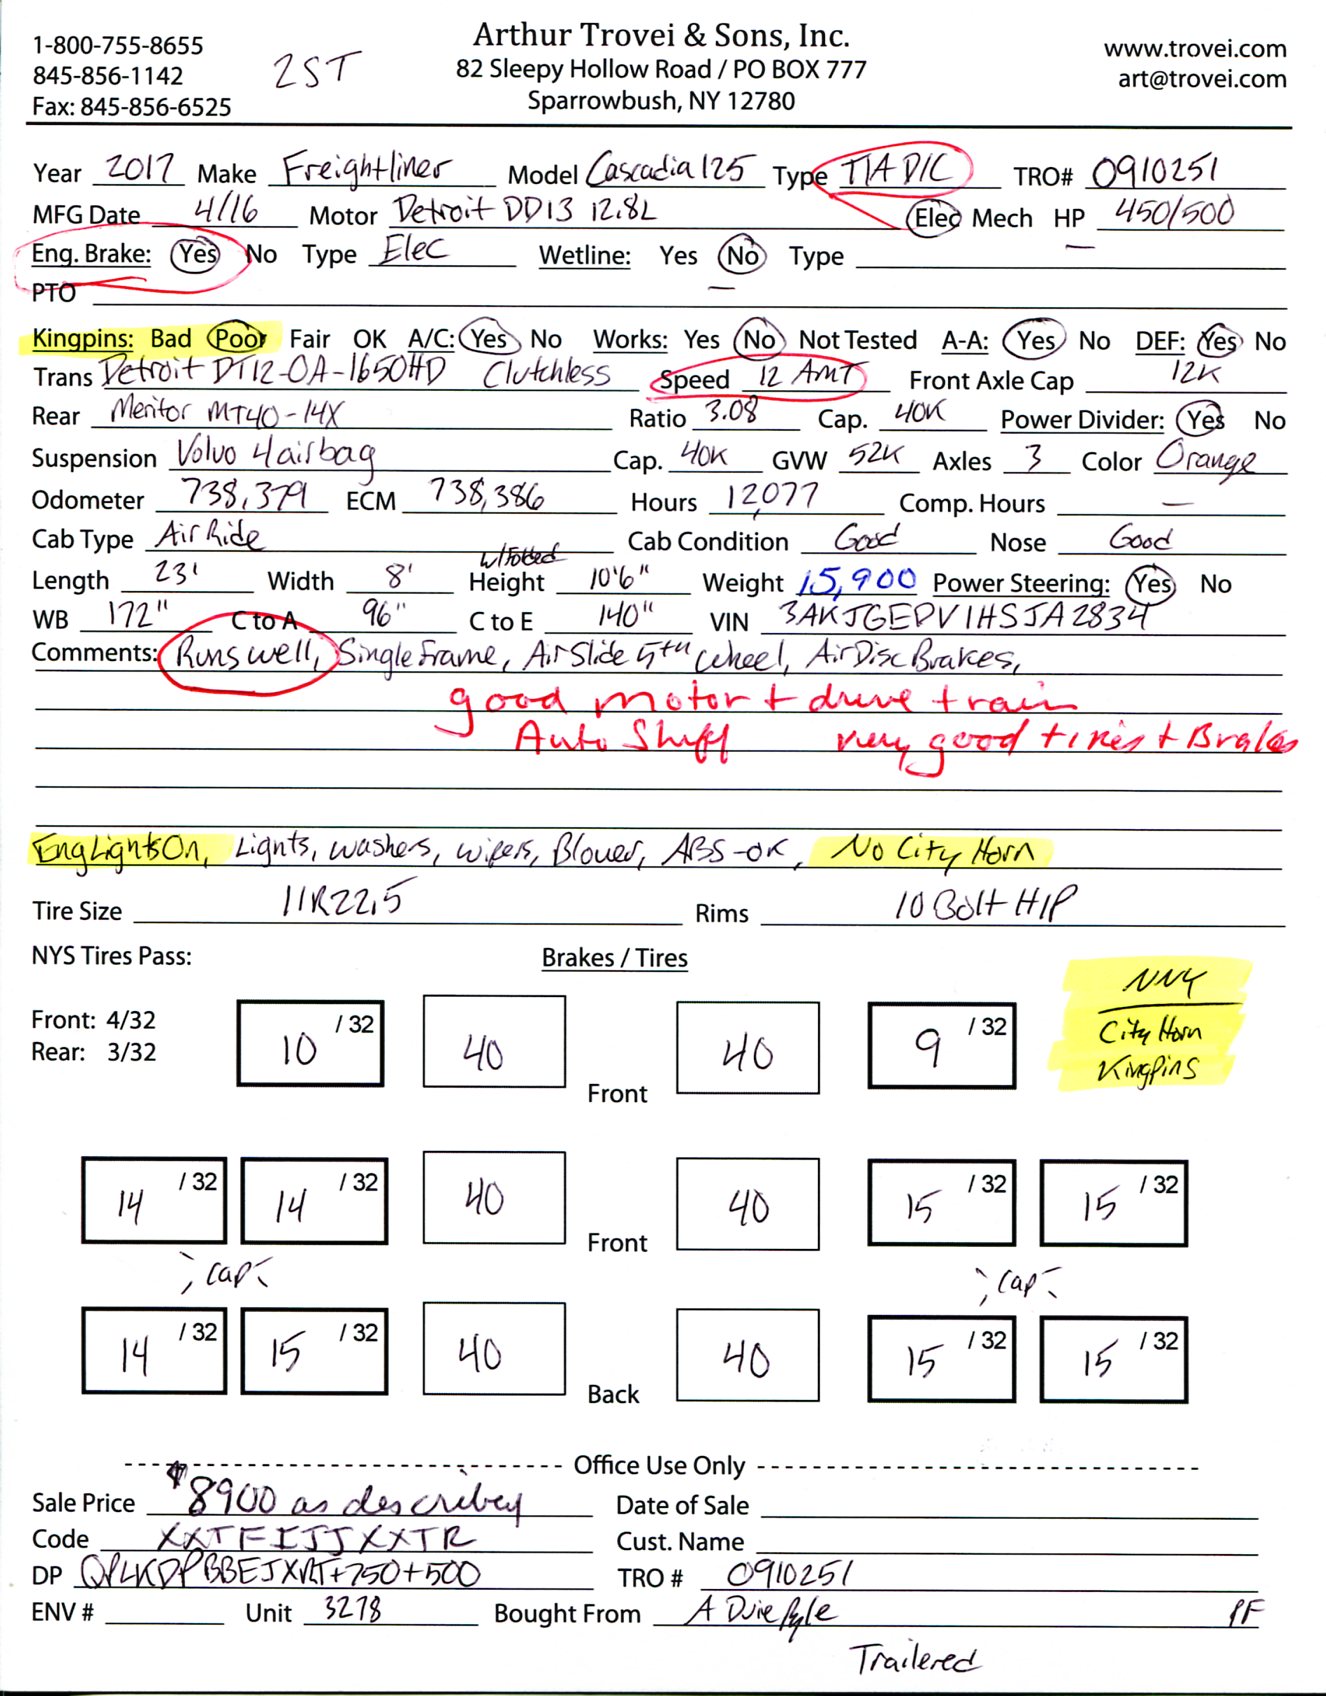 1-800-755-8655
845-856-1142
Fax: 845-856-6525
2ST
Arthur Trovei & Sons, Inc.
82 Sleepy Hollow Road / PO BOX 777
Sparrowbush, NY 12780
www.trovei.com
art@trovei.com
Year 2017 Make Freightliner Model Cascadia 125 Type T/A D/C TRO# 0910251
MFG Date 4/16 Motor Detroit DD13 12.8L Elec Mech HP 450/500
Eng. Brake: Yes No Type Elec Wetline: Yes No Type
PTO
Kingpins: Bad Poor Fair OK A/C: Yes No Works: Yes No Not Tested A-A: Yes No DEF: Yes No
Trans Detroit DT12-OA-1650HD Clutchless Speed 12 AMT Front Axle Cap 12K
Rear Meritor MT40-14X Ratio 3.08 Cap. 40K Power Divider: Yes No
Suspension Volvo 4 airbag Cap. 40K GVW 52K Axles 3 Color Orange
Odometer 738,379 ECM 738,386 Hours 12,077 Comp. Hours —
Cab Type Air Ride Cab Condition Good Nose Good
Length 23' Width 8' w/Folded Height 10'6" Weight 15,900 Power Steering: Yes No
WB 172" C to A 96" C to E 140" VIN 3AKJGEDV1HSJA2834
Comments: Runs well, Single Frame, Air Slide 5th Wheel, Air Disc Brakes,
good motor + drive train
Auto Shift very good tires + Brakes
Eng Lights On, Lights, washers, wipers, Blower, ABS-OK, No City Horn
Tire Size 11R22.5 Rims 10 Bolt H/P
NYS Tires Pass: Brakes / Tires
Front: 4/32
Rear: 3/32
NNY
City Horn
Kingpins
10 /32 40 40 9 /32
Front
14 /32 14 /32 40 40 15 /32 15 /32
Front
Cap Cap
14 /32 15 /32 40 40 15 /32 15 /32
Back
Office Use Only
Sale Price $8900 as described Date of Sale
Code XXTFIJJXXTR Cust. Name
DP +750+500 TRO # 0910251
ENV # Unit 3278 Bought From A Duie Pyle PF
Trailered